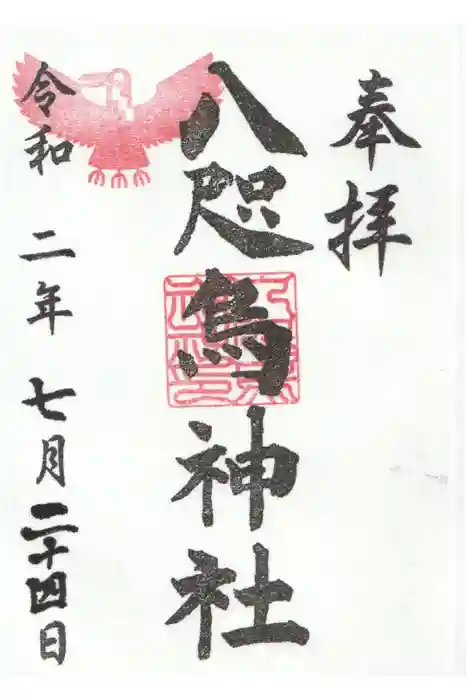 奉拝
八咫烏神社
令和二年七月二十四日